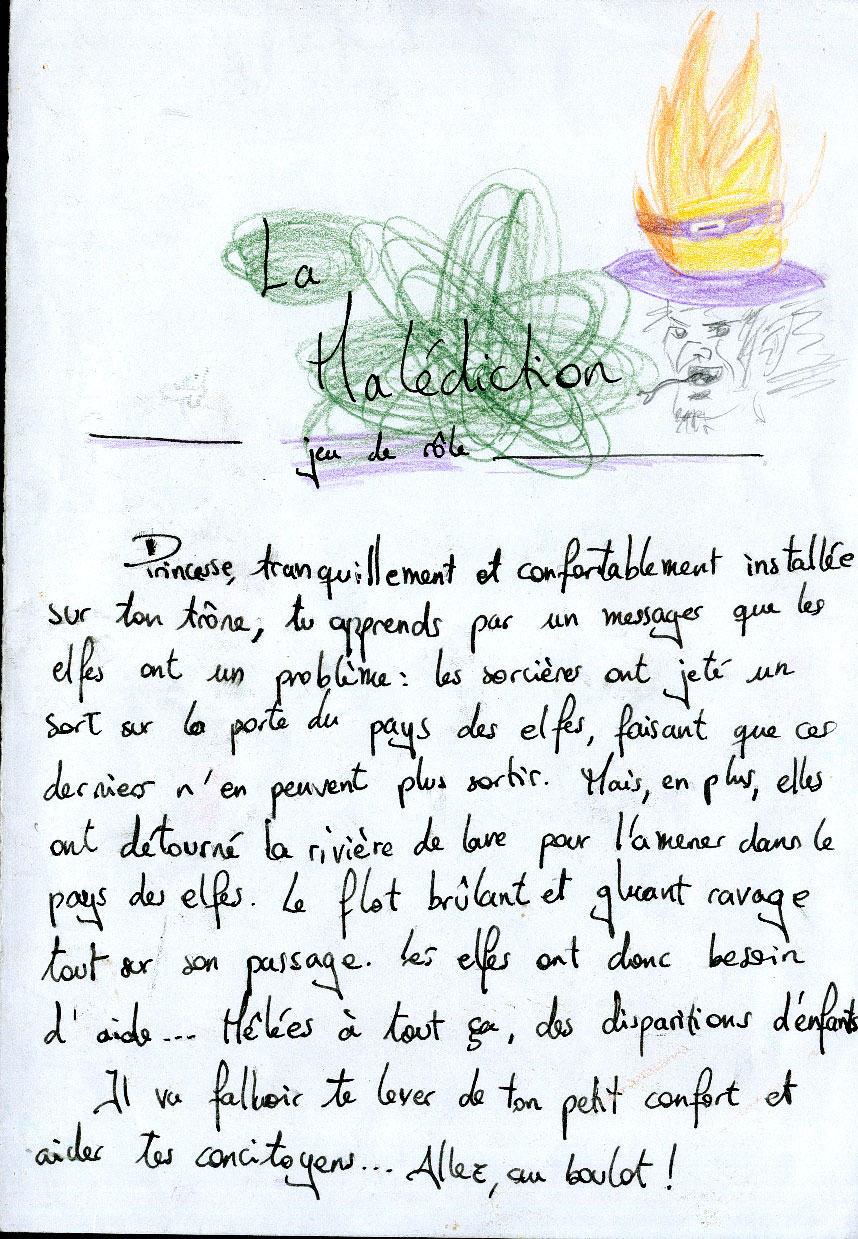 La
Malédiction
jeu de rôle
Princesse, tranquillement et confortablement installée
sur ton trône, tu apprends par un messages que les
elfes ont un problème : les sorcières ont jeté un
sort sur la porte du pays des elfes, faisant que ces
derniers n'en peuvent plus sortir. Mais, en plus, elles
ont détourné la rivière de lave pour l'amener dans le
pays des elfes. Le flot brûlant et gluant ravage
tout sur son passage. Les elfes ont donc besoin
d'aide... Mêlées à tout ça, des disparitions d'enfants
Il va falloir te lever de ton petit confort et
aider tes concitoyens... Allez, au boulot !